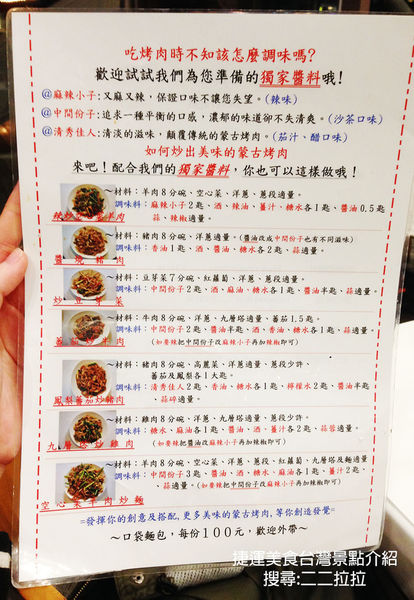 吃烤肉時不知該怎麼調味嗎?
歡迎試試我們為您準備的獨家醬料哦!
@麻辣小子:又麻又辣,保證口味不讓您失望。(辣味)
@中間份子:追求一種平衡的口感,濃郁的味道卻不失清爽。(沙茶口味)
@清秀佳人:清淡的滋味,顛覆傳統的蒙古烤肉。(茄汁、醋口味)
如何炒出美味的蒙古烤肉
來吧!配合我們的獨家醬料,你也可以這樣做哦!
~材料:羊肉8分碗、空心菜、洋蔥、蔥段適量。
調味料:麻辣小子2匙、酒、辣油、薑汁、糖水各1匙、醬油0.5匙
蒜、辣椒適量。
~材料:豬肉8分碗、洋蔥適量。(醬油改成中間份子也有不同滋味)
調味料:香油1匙、酒、醬油、糖水各2匙、蒜適量。
醬燒豬肉
~材料:豆芽菜7分碗、紅蘿蔔、洋蔥、蔥段適量。
調味料:中間份子2匙、酒、麻油、糖水各1匙、醬油半匙、蒜適量。
炒豆芽菜
~材料:牛肉8分碗、洋蔥、九層塔適量、蕃茄1.5匙。
調味料:中間份子2匙、醬油半匙、酒、香油、糖水各1匙、蒜適量。
(如要辣把中間份子改麻辣小子再加辣椒即可)
蕃茄炒牛肉
~材料:豬肉8分碗、高麗菜、洋蔥、蔥段少許、
蕃茄及鳳梨各1大匙。
調味料:清秀佳人2匙、香油、糖水各1匙、檸檬水2匙、醬油半匙、
蒜碎適量。
鳳梨蕃茄炒豬肉
~材料:雞肉8分碗、洋蔥、九層塔適量、蔥段少許。
調味料:糖水、麻油各1匙、酒、醬油、薑汁各2匙、蒜蓉適量。
(如要辣把醬油改麻辣小子再加辣椒即可)
九層塔炒雞肉
~材料:羊肉8分碗、空心菜、洋蔥、蔥段、紅蘿蔔、九層塔及麵適量
調味料:中間份子3匙、醬油、酒、糖水、麻油各1匙、薑汁2匙、
蒜適量。(如要辣把中間份子改麻辣小子再加辣椒即可)
空心菜羊肉炒麵
=發揮你的創意及搭配,更多美味的蒙古烤肉,等你創造發覺=
~口袋麵包,每份100元,歡迎外帶~
捷運美食台灣景點介紹
搜尋:二二拉拉